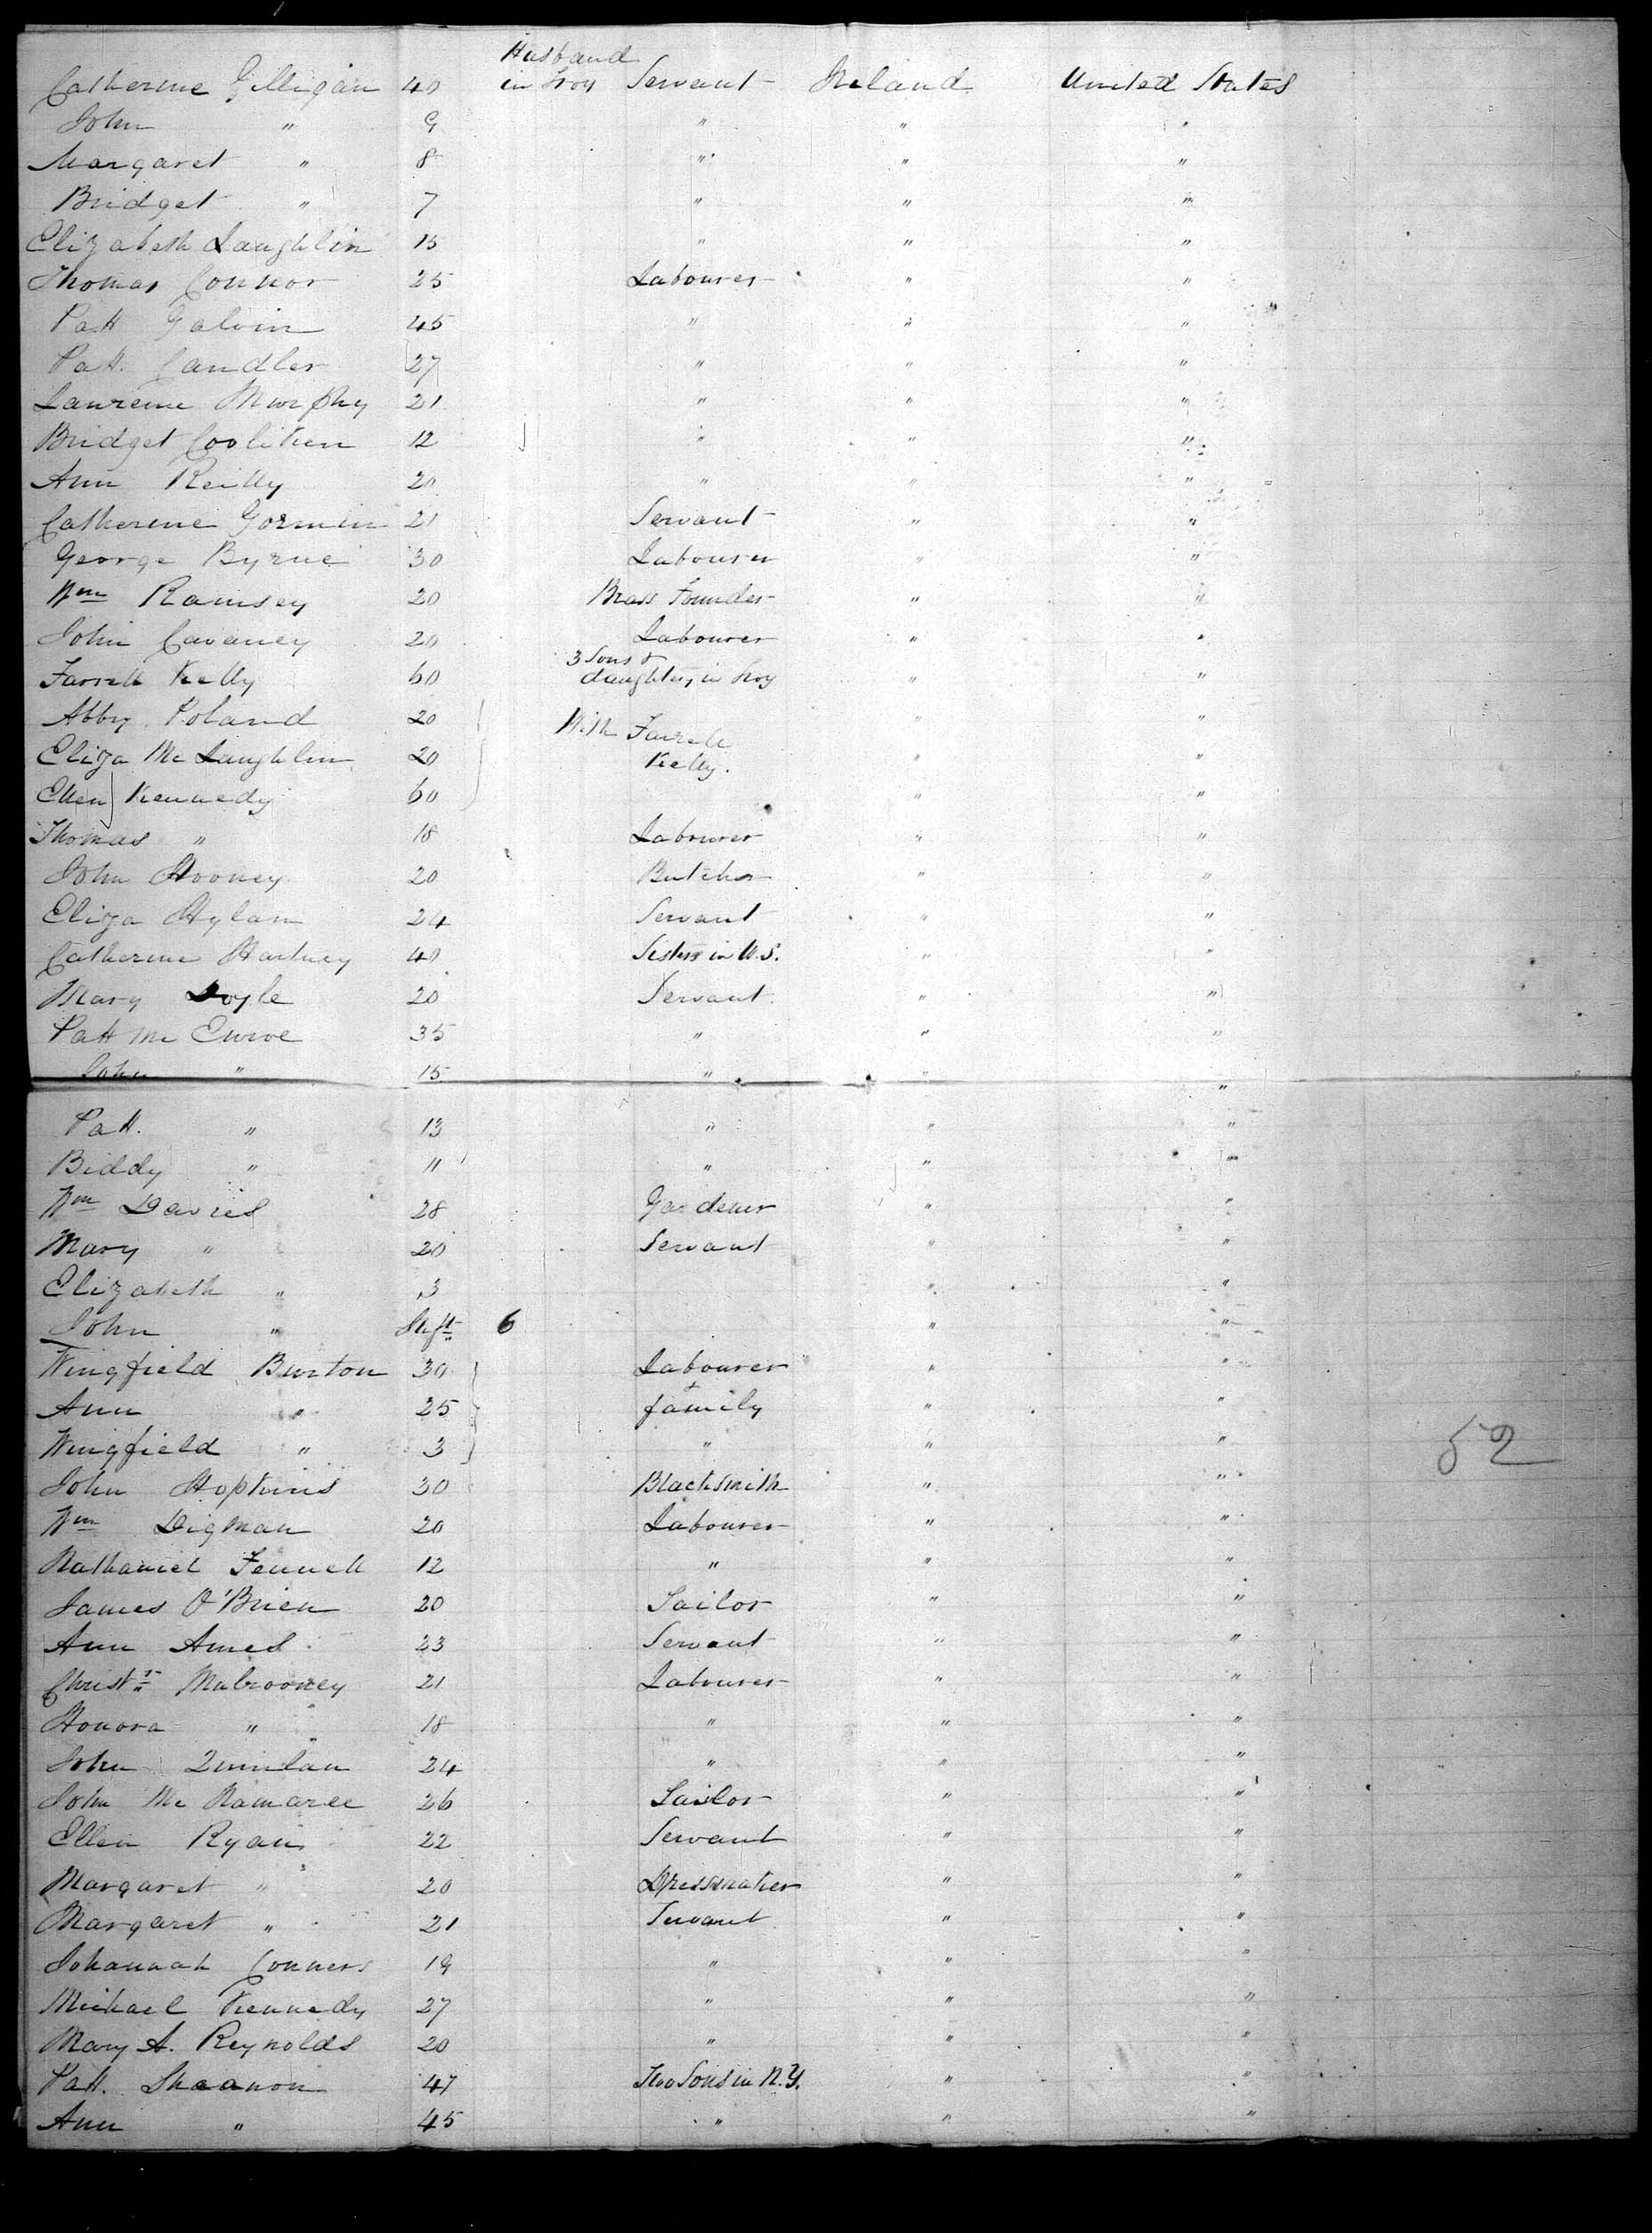 Husband
Catherine Gilligan 40 in Troy Servant Ireland United States
John " 9 " " "
Margaret " 8 " " "
Bridget " 7 " " "
Elizabeth Laughlin 15 " " "
Thomas Connor 25 Labourer " "
Patt Galvin 45 " " "
Patt. Candler 27 " " "
Laurence Murphy 21 " " "
Bridget Cooliken 12 " " "
Ann Reilly 20 " " "
Catherine Gormin 21 Servant " "
George Byrne 30 Labourer " "
Wm Ramsey 20 Brass Founder " "
John Cavaney 20 Labourer " "
3 Sons &
Farrell Kelly 60 daughters in Troy " "
Abby Poland 20 With Farrell " "
Eliza McLaughlin 20 Kelly. " "
Ellen Kennedy 60 " "
Thomas " 18 Labourer " "
John Hooney 20 Butcher " "
Eliza Hylan 24 Servant " "
Catherine Hartney 40 Sisters in U.S. " "
Mary Doyle 20 Servant " "
Patt Mc 35 " " "
John " 15 " " "
Patt. " 13 " " "
Biddy " 11 " " "
Wm Davies 28 Gardener " "
Mary " 20 Servant " "
Elizabeth " 3 " "
John " 6 " "
Wingfield Burton 30 Labourer " "
Ann " 25 & family " "
Wingfield " 3 " " "
John Hopkins 30 Blacksmith " "
Wm Digman 20 Labourer " "
Nathaniel Fennell 12 " " "
James O'Brien 20 Sailor " "
Ann Ames 23 Servant " "
Christr Mulrooney 21 Labourer " "
Honora " 18 " " "
John Quinlan 24 " " "
John Mc Namaree 26 Sailor " "
Ellen Ryan 22 Servant " "
Margaret " 20 Dressmaker " "
Margaret " 21 Servant " "
Johannah Conners 19 " " "
Michael Kennedy 27 " " "
Mary A. Reynolds 20 " " "
Patt. Shaanon 47 Two Sons in N.Y. " "
Ann " 45 " " "
52